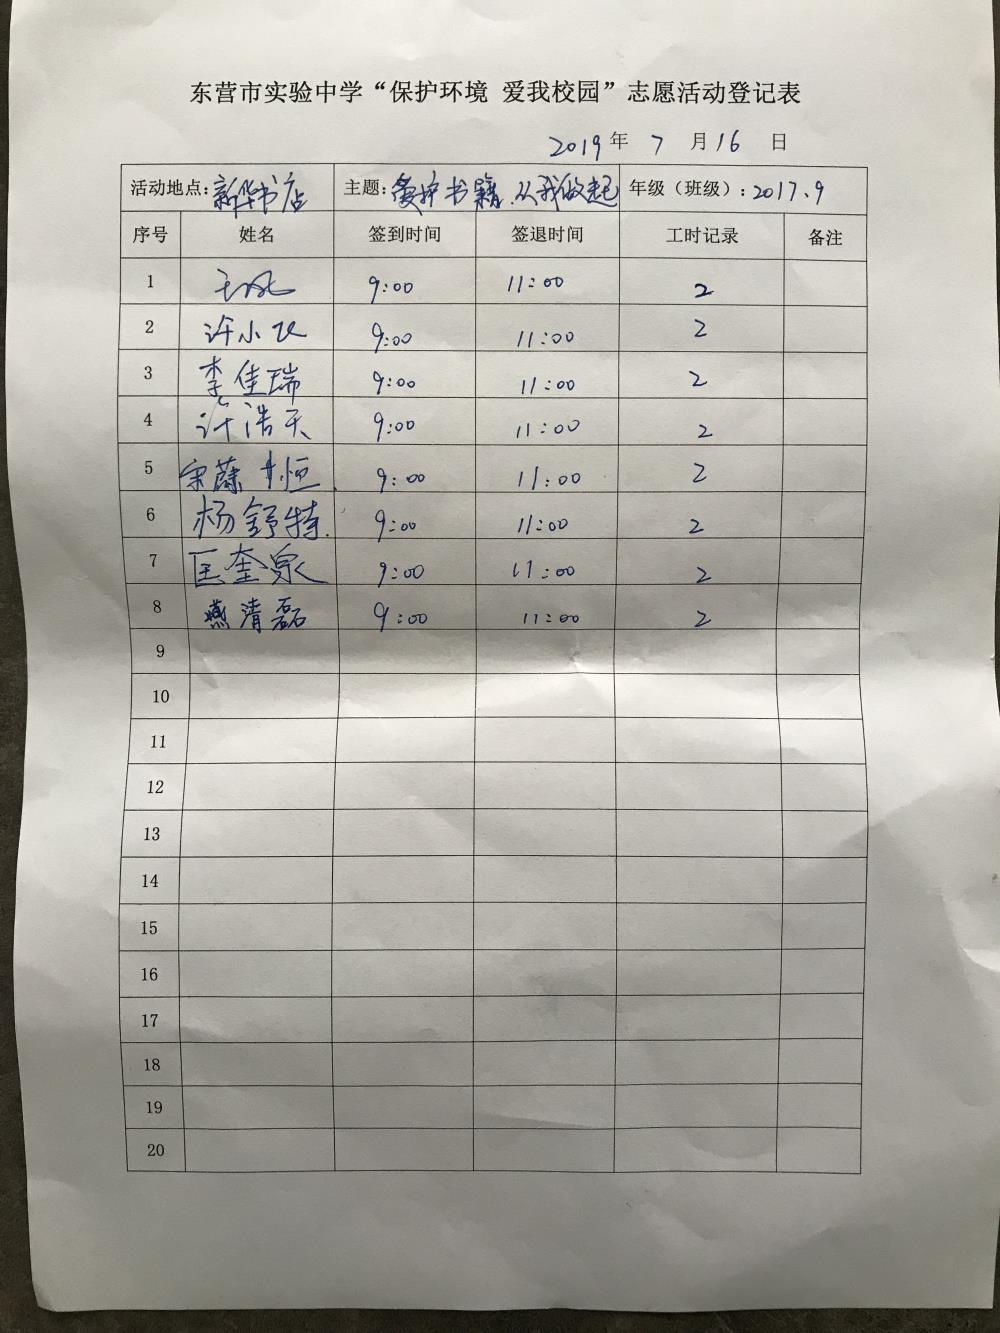 东营市实验中学“保护环境 爱我校园”志愿活动登记表
2019年 7 月16 日
活动地点:新华书店 主题:爱护书籍.从我做起 年级（班级）:2017.9
序号 姓名 签到时间 签退时间 工时记录 备注
1 9:00 11:00 2
2 许小飞 9:00 11:00 2
3 李佳瑞 9:00 11:00 2
4 许浩天 9:00 11:00 2
5 宋 恒 9:00 11:00 2
6 杨舒特. 9:00 11:00 2
7 匡奎泉 9:00 11:00 2
8 燕清磊 9:00 11:00 2
9
10
11
12
13
14
15
16
17
18
19
20